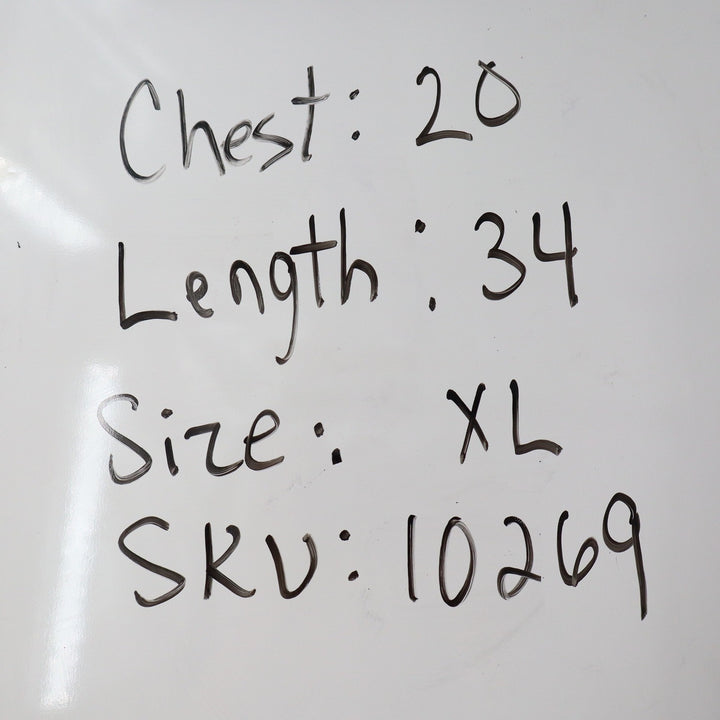 Chest: 20
Length: 34
Size: XL
SKU: 10269